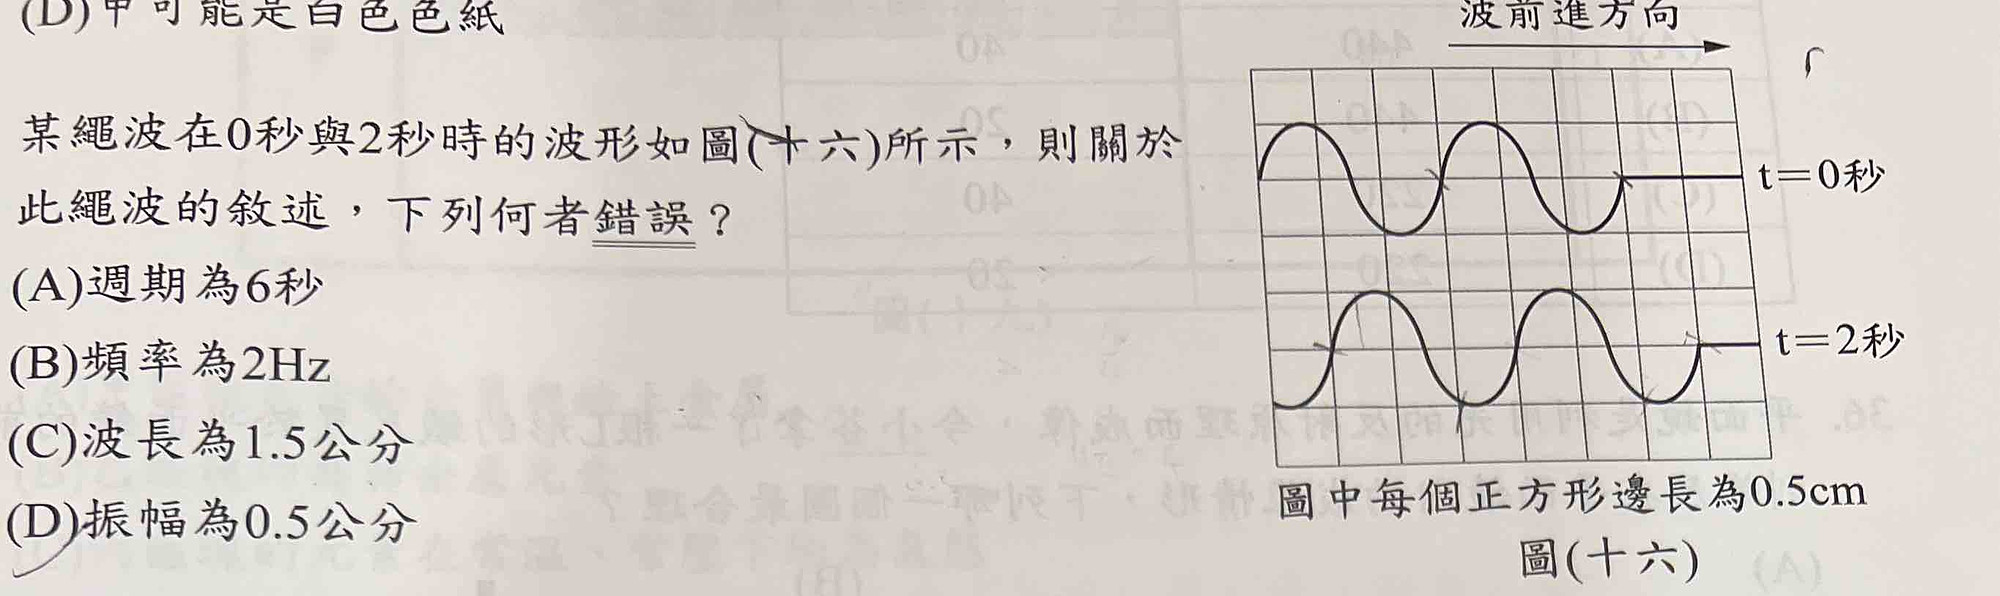 (D)甲可能是白色色紙
某繩波在0秒與2秒時的波形如圖(十六)所示，則關於
此繩波的敘述，下列何者錯誤？
(A)週期為6秒
(B)頻率為2Hz
(C)波長為1.5公分
(D)振幅為0.5公分
波前進方向
t＝0秒
t＝2秒
圖中每個正方形邊長為0.5cm
圖(十六)